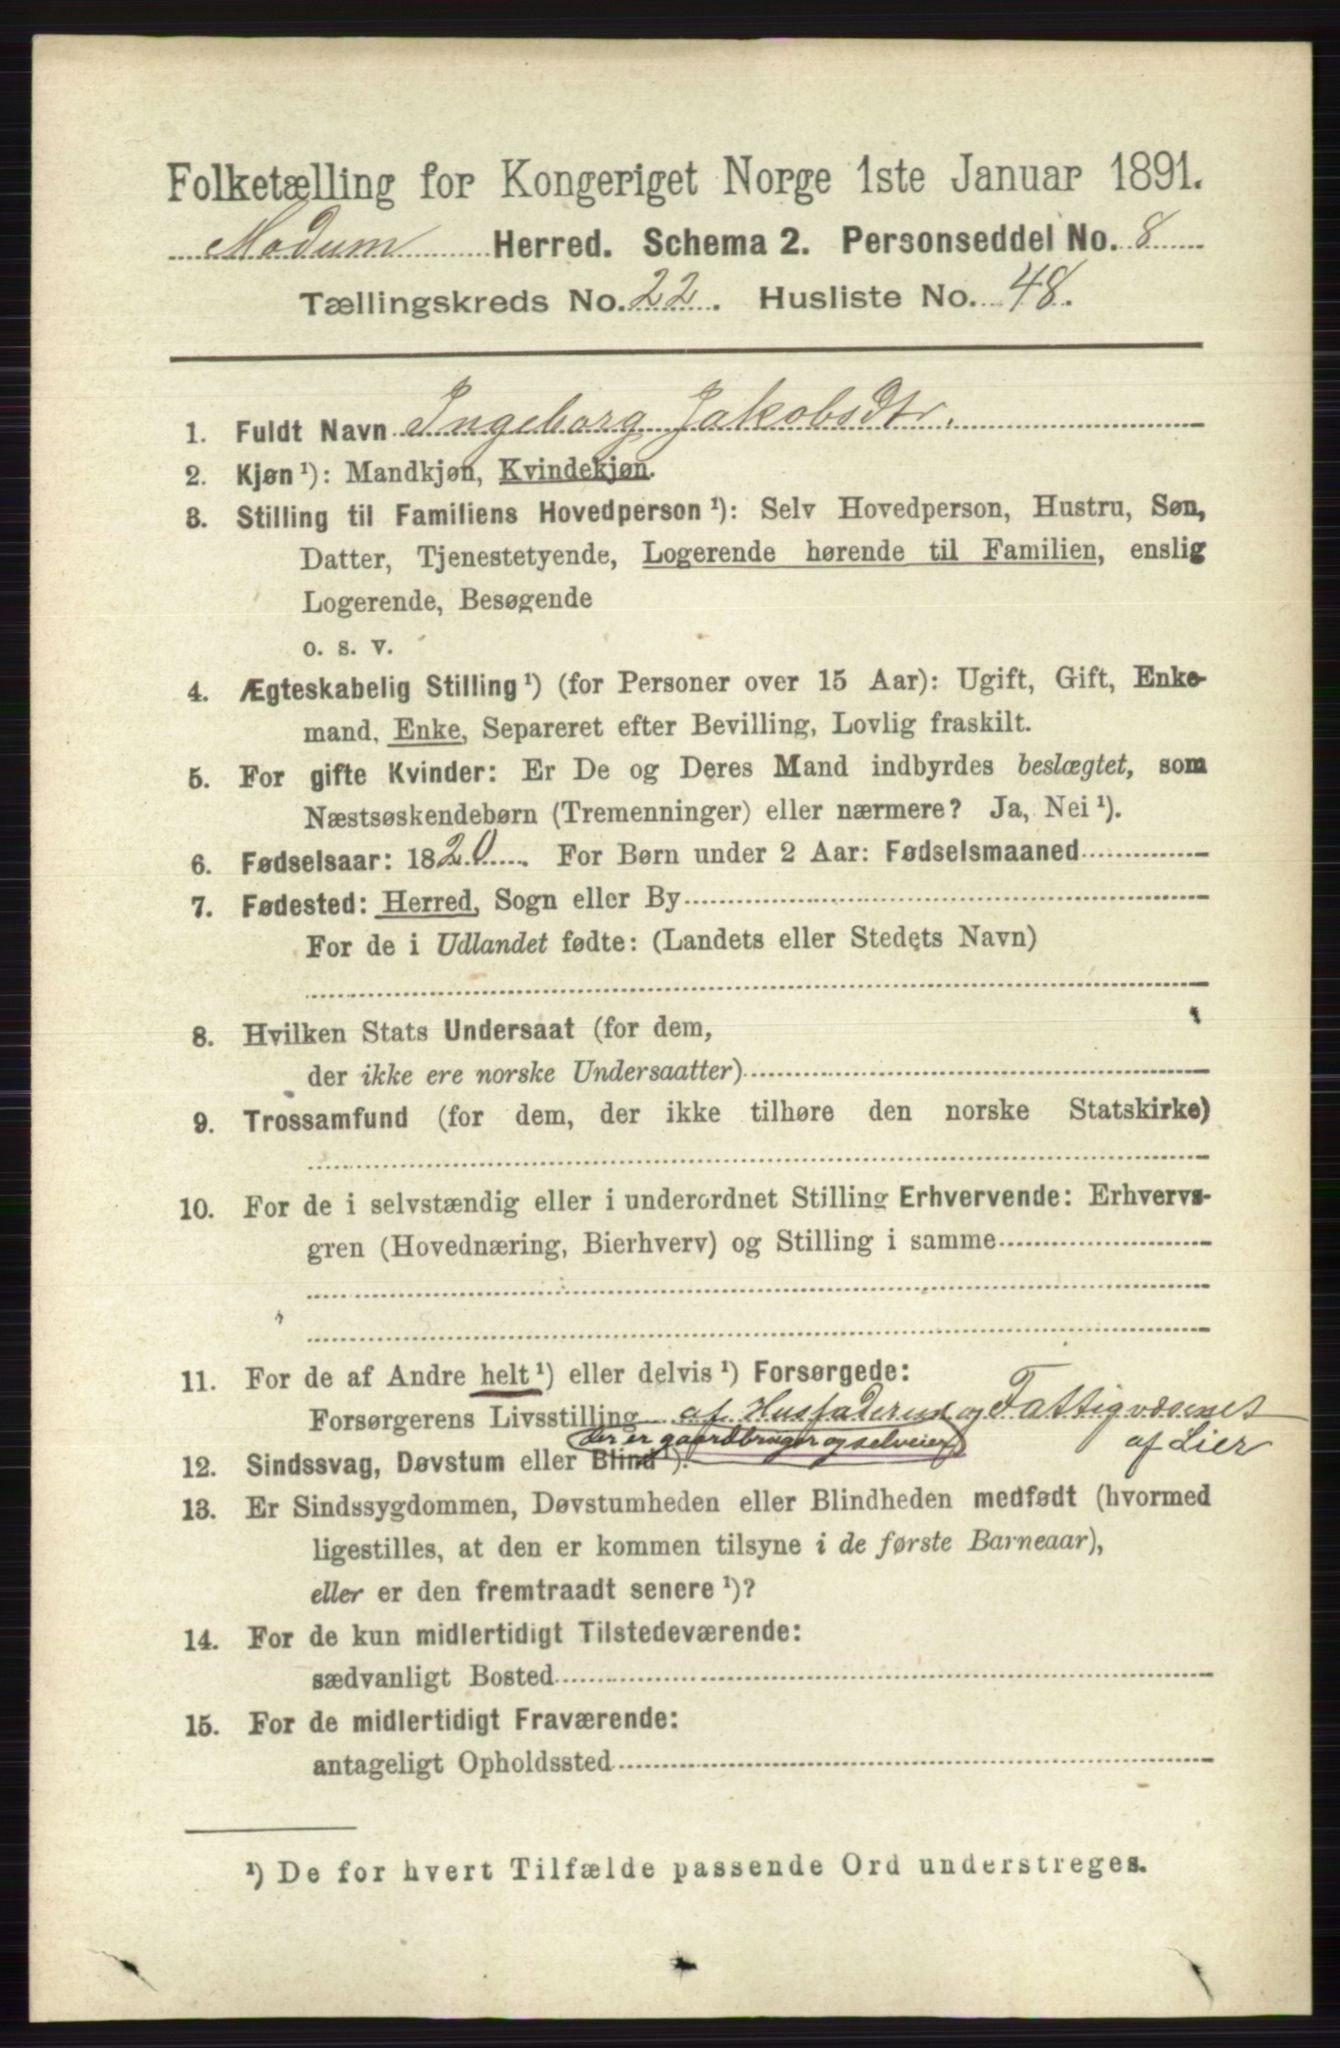 Folketælling for Kongeriget Norge 1ste Januar 1891.
Modum Herred. Schema 2. Personseddel No. 8
Tællingskreds No. 22. Husliste No. 48.
1. Fuldt Navn Ingeborg Jakobsdtr.
2. Kjøn ¹): Mandkjøn, Kvindekjøn.
3. Stilling til Familiens Hovedperson ¹): Selv Hovedperson, Hustru, Søn,
Datter, Tjenestetyende, Logerende hørende til Familien, enslig
Logerende, Besøgende
o. s. v.
4. Ægteskabelig Stilling ¹) (for Personer over 15 Aar): Ugift, Gift, Enke-
mand, Enke, Separeret efter Bevilling, Lovlig fraskilt.
5. For gifte Kvinder: Er De og Deres Mand indbyrdes beslægtet, som
Næstsøskendebørn (Tremenninger) eller nærmere? Ja, Nei ¹).
6. Fødselsaar: 1820. For Børn under 2 Aar: Fødselsmaaned
7. Fødested: Herred, Sogn eller By
For de i Udlandet fødte: (Landets eller Stedets Navn)
8. Hvilken Stats Undersaat (for dem,
der ikke ere norske Undersaatter)
9. Trossamfund (for dem, der ikke tilhøre den norske Statskirke)
10. For de i selvstændig eller i underordnet Stilling Erhvervende: Erhvervs-
gren (Hovednæring, Bierhverv) og Stilling i samme
11. For de af Andre helt ¹) eller delvis ¹) Forsørgede:
Forsørgerens Livsstilling af Husfaderen og Fattigvæsenet
der er gaardbruger og selveier af Lier
12. Sindssvag, Døvstum eller Blind ¹).
13. Er Sindssygdommen, Døvstumheden eller Blindheden medfødt (hvormed
ligestilles, at den er kommen tilsyne i de første Barneaar),
eller er den fremtraadt senere ¹)?
14. For de kun midlertidigt Tilstedeværende:
sædvanligt Bosted
15. For de midlertidigt Fraværende:
antageligt Opholdssted
¹) De for hvert Tilfælde passende Ord understreges.